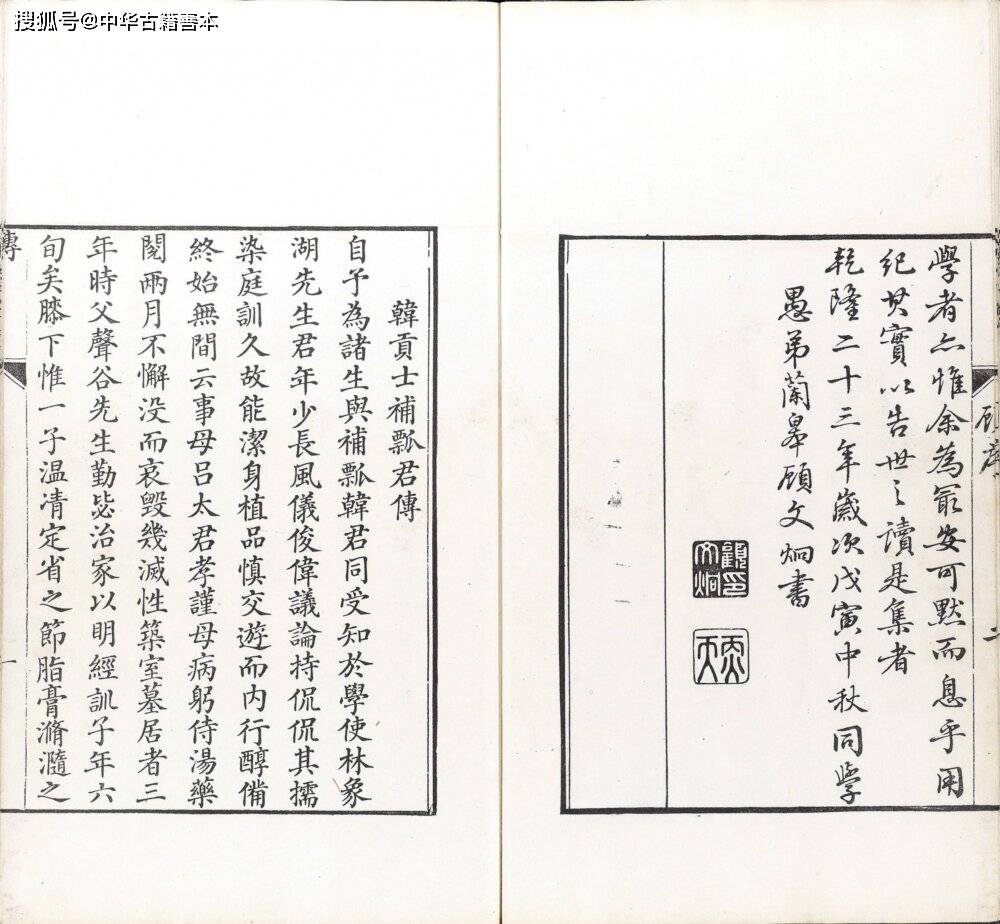 搜狐号@中华古籍善本
學者亦惟余為最安可默而息乎用
紀其實以告世之讀是集者
乾隆二十三年歲次戊寅中秋同學
愚弟蘭皋顧文炯書
顧印文炯
顧序
二
韓貢士補瓢君傳
自予為諸生與補瓢韓君同受知於學使林象
湖先生君年少長風儀俊偉議論持侃侃其擩
染庭訓久故能潔身植品慎交遊而內行醇備
終始無間云事母呂太君孝謹母病躬侍湯藥
閱兩月不懈没而哀毀幾滅性築室墓居者三
年時父聲谷先生勤毖治家以明經訓子年六
旬矣膝下惟一子温凊定省之節脂膏滫瀡之
傳
一